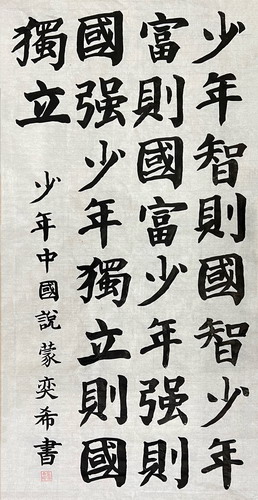 少年智則國智少年
富則國富少年强則
國强少年獨立則國
獨立
少年中國説蒙奕希書